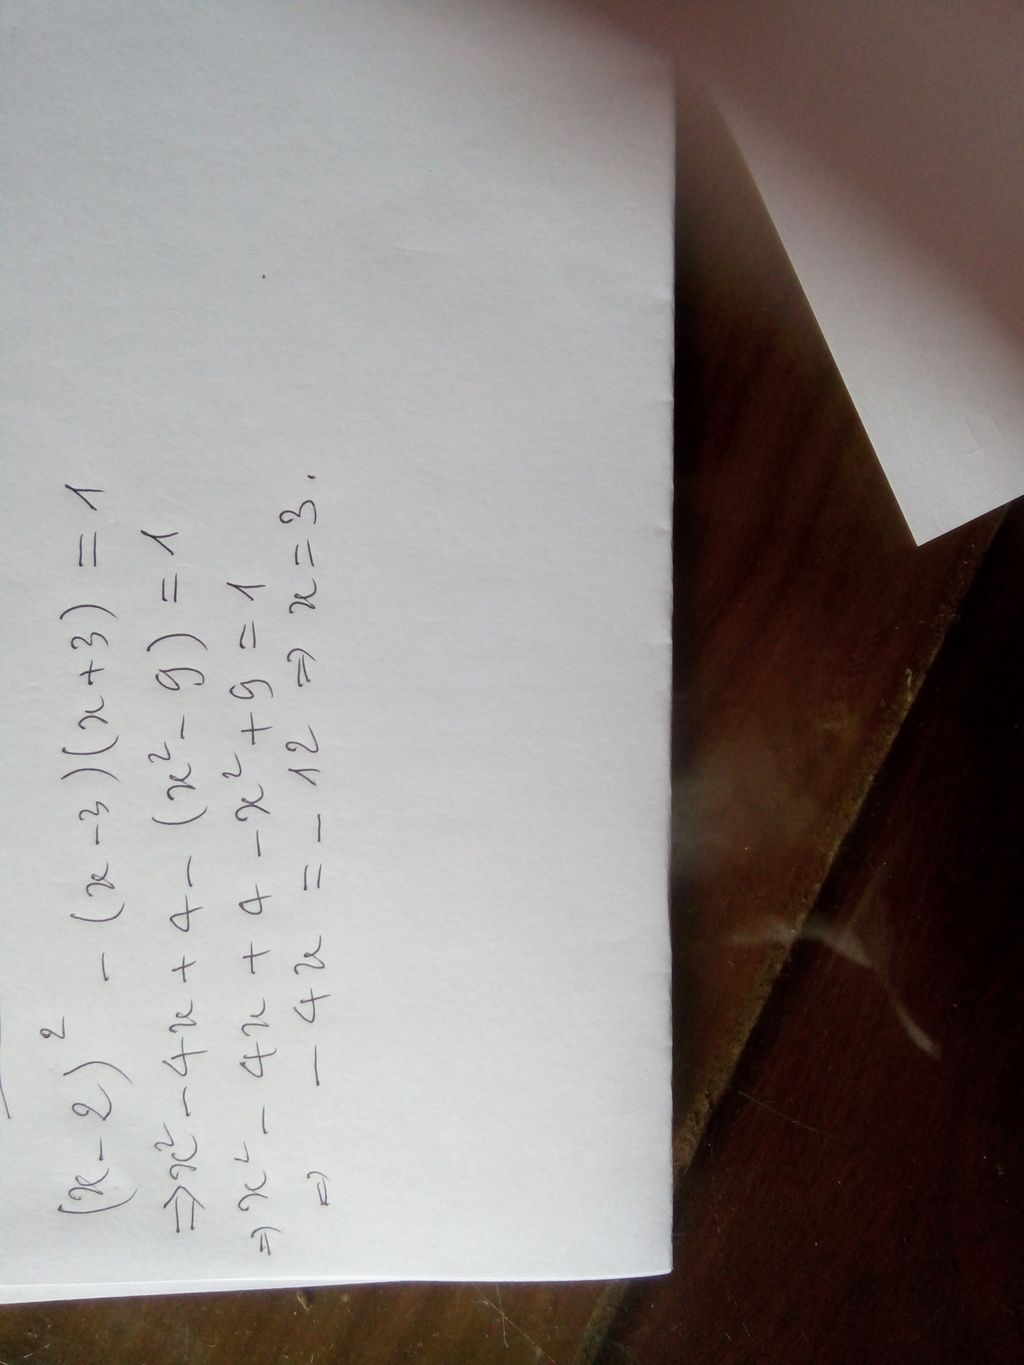 (x-2)² - (x-3)(x+3) = 1
⇒ x² - 4x + 4 - (x² - 9) = 1
⇒ x² - 4x + 4 - x² + 9 = 1
⇒ - 4x = - 12 ⇒ x = 3.